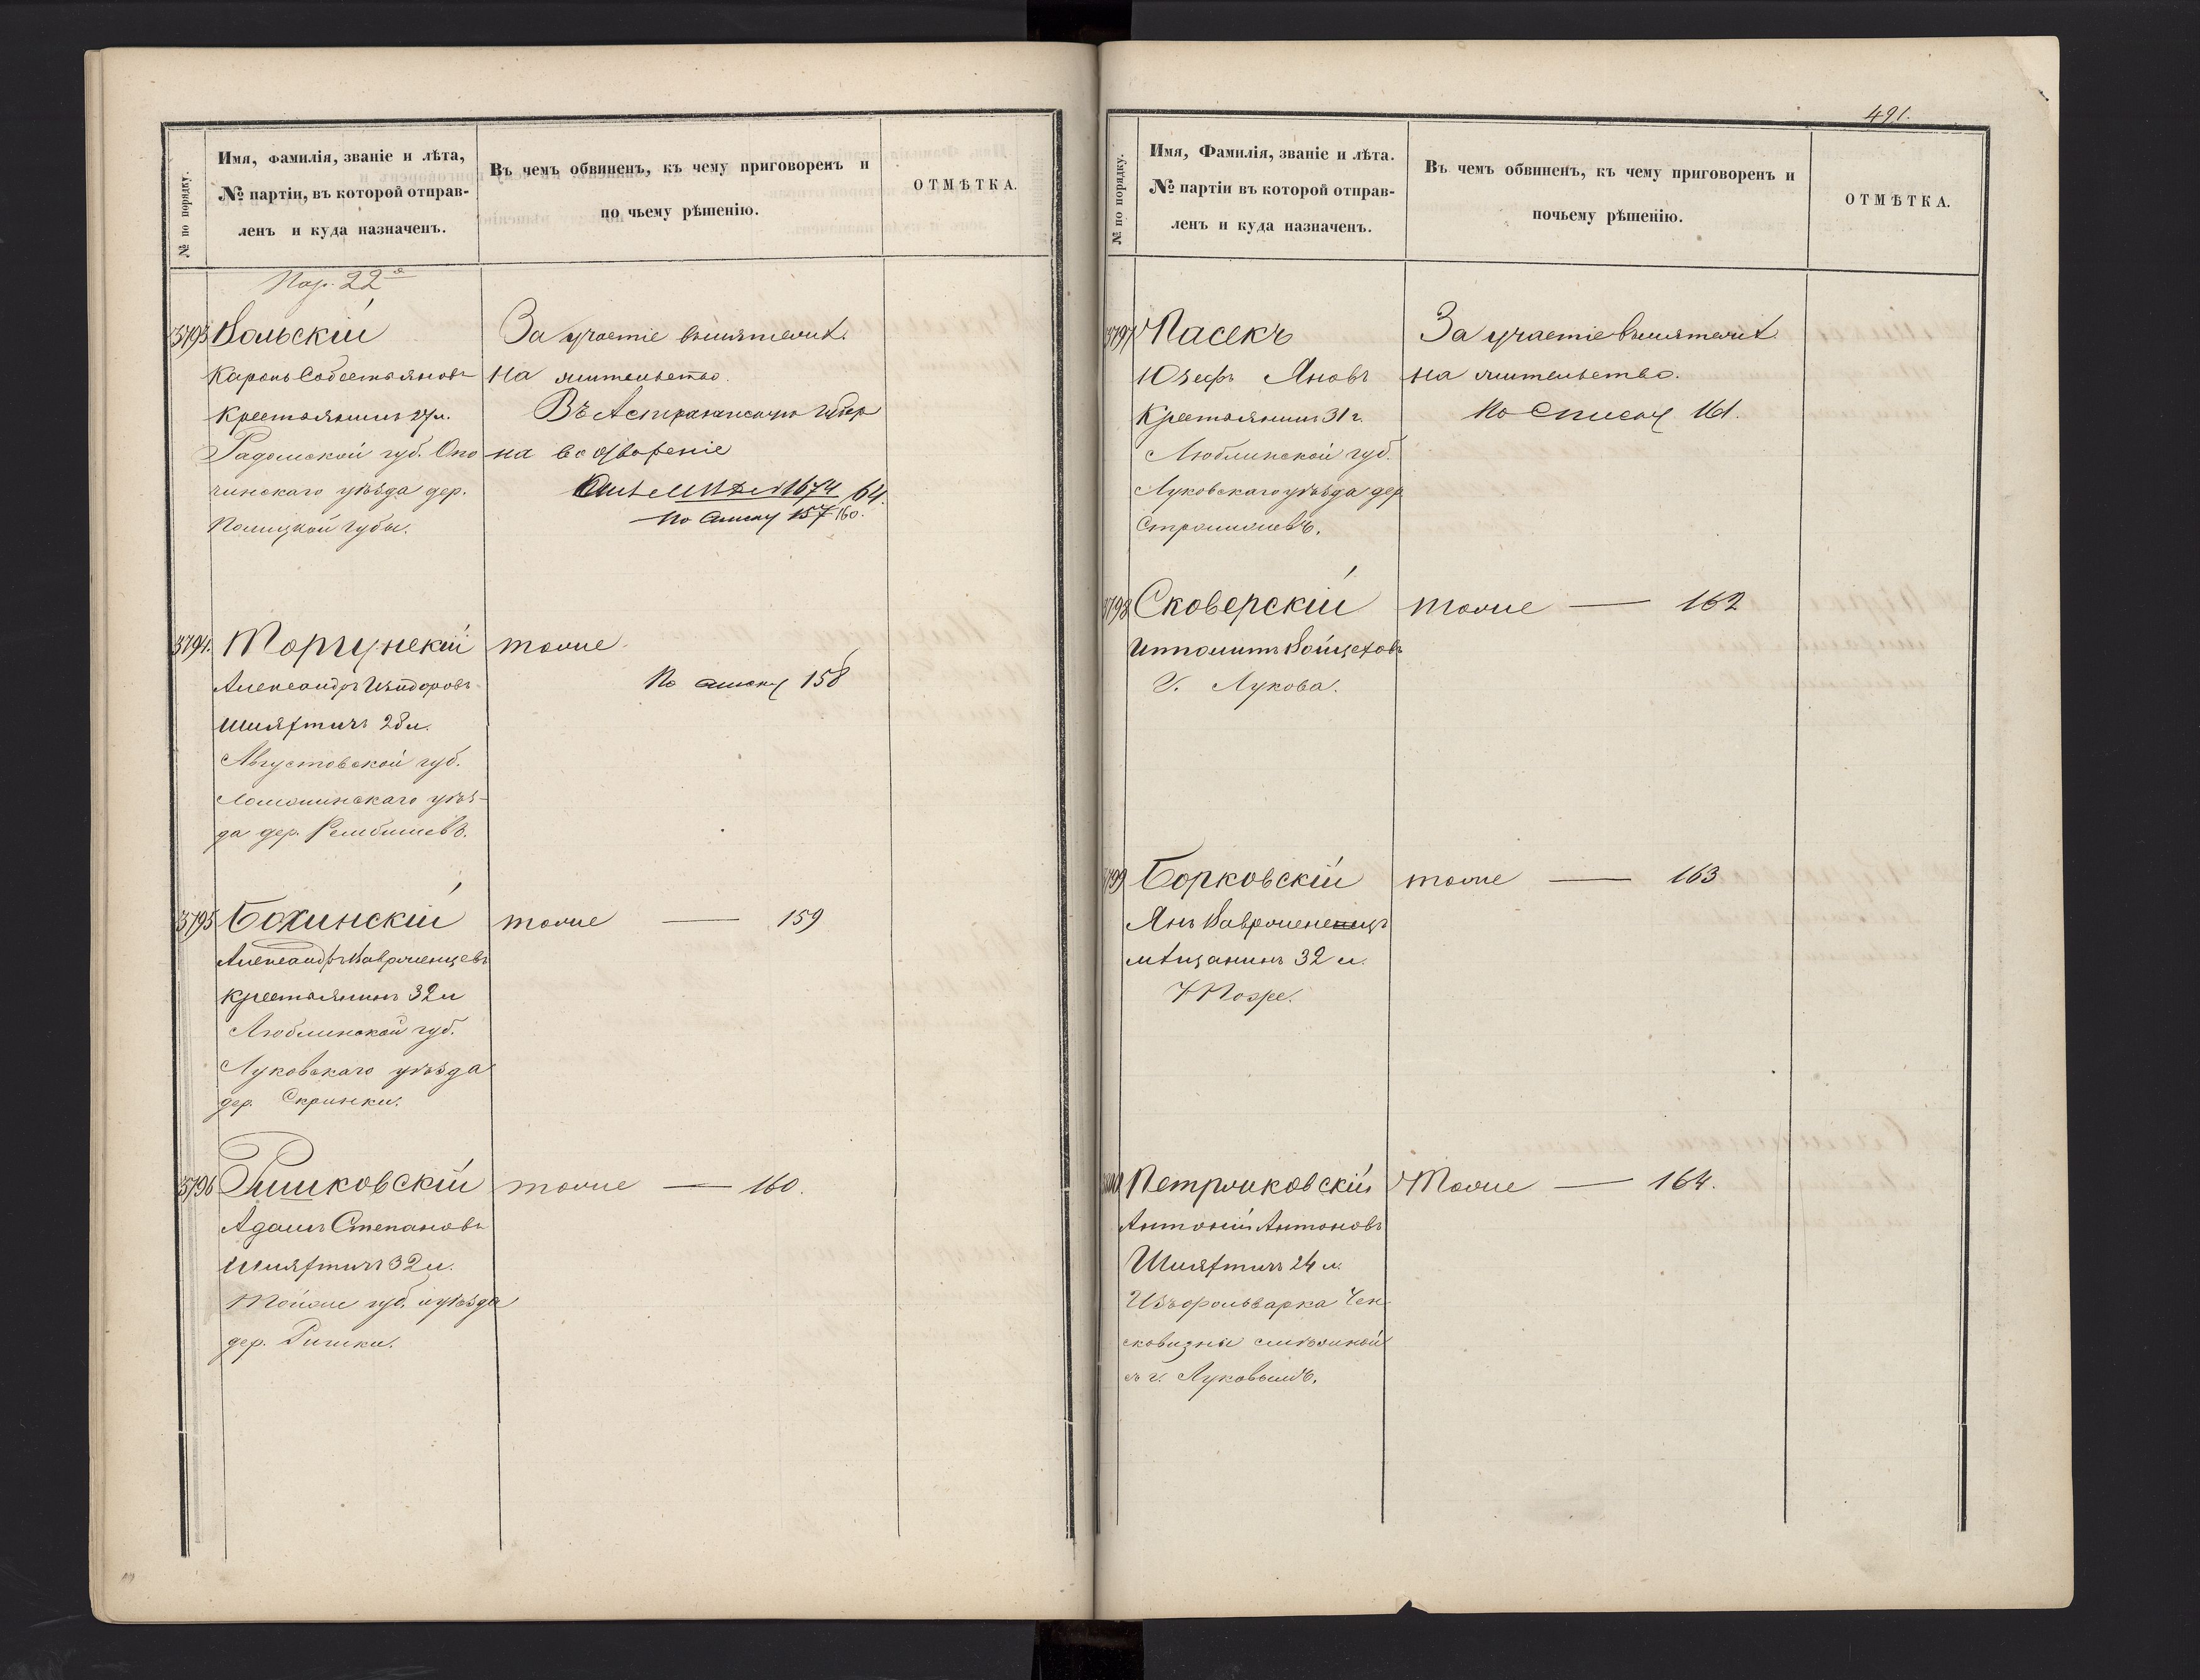 № по порядку.
Имя, фамилія, званіе и лѣта,
№ партіи, въ которой отправ-
ленъ и куда назначенъ.
Въ чемъ обвиненъ, къ чему приговоренъ и
по чьему рѣшенію.
ОТМѢТКА.
Пар. 22я
3793 Вольскій
Кароль Собестьяновъ
Крестьянинъ 27 л.
Радомской губ. Опо
чинскаго уѣзда дер.
За участіе въ мятежѣ.
на жительство.
Въ Астраханскую губер
на водвореніе
1674/64.
По списку 157 160.
3794.
Александръ Изидоровъ
Шляхтичъ 28 л.
Августовской губ.
Ломжинскаго уѣз-
да дер. Рембишевъ.
тоже
По списку 158
3795 Бохинскій
Александръ Ваврженцевъ
крестьянинъ 32 л
Люблинской губ.
Луковскаго уѣзда
дер. Скржинки.
тоже — 159
3796 Ришковскій
Адамъ Степановъ
Шляхтичъ 32 л.
Тойже губ. и уѣзда
дер. Ришки.
тоже — 160.
491.
№ по порядку.
Имя, Фамилія, званіе и лѣта.
№ партіи въ которой отправ-
ленъ и куда назначенъ.
Въ чемъ обвиненъ, къ чему приговоренъ и
почьему рѣшенію.
ОТМѢТКА.
3797 Пасекъ
Юзефъ Яновъ
Крестьянинъ 31 г.
Люблинской губ.
Луковскаго уѣзда дер
За участіе въ мятежѣ
на жительство.
По списку 161.
3798 Сковерскій
Ипполитъ Войцеховъ
Г. Лукова.
тоже — 162
3799 Борковскій
Янъ
мѣщанинъ 32 л.
тоже — 163
3800 Петржиковскій
Антоній Антоновъ
Шляхтичъ 24 л.
Изъ фольварка Чен
сковизны смѣжной
съ г. Луковымъ.
Тоже — 164.